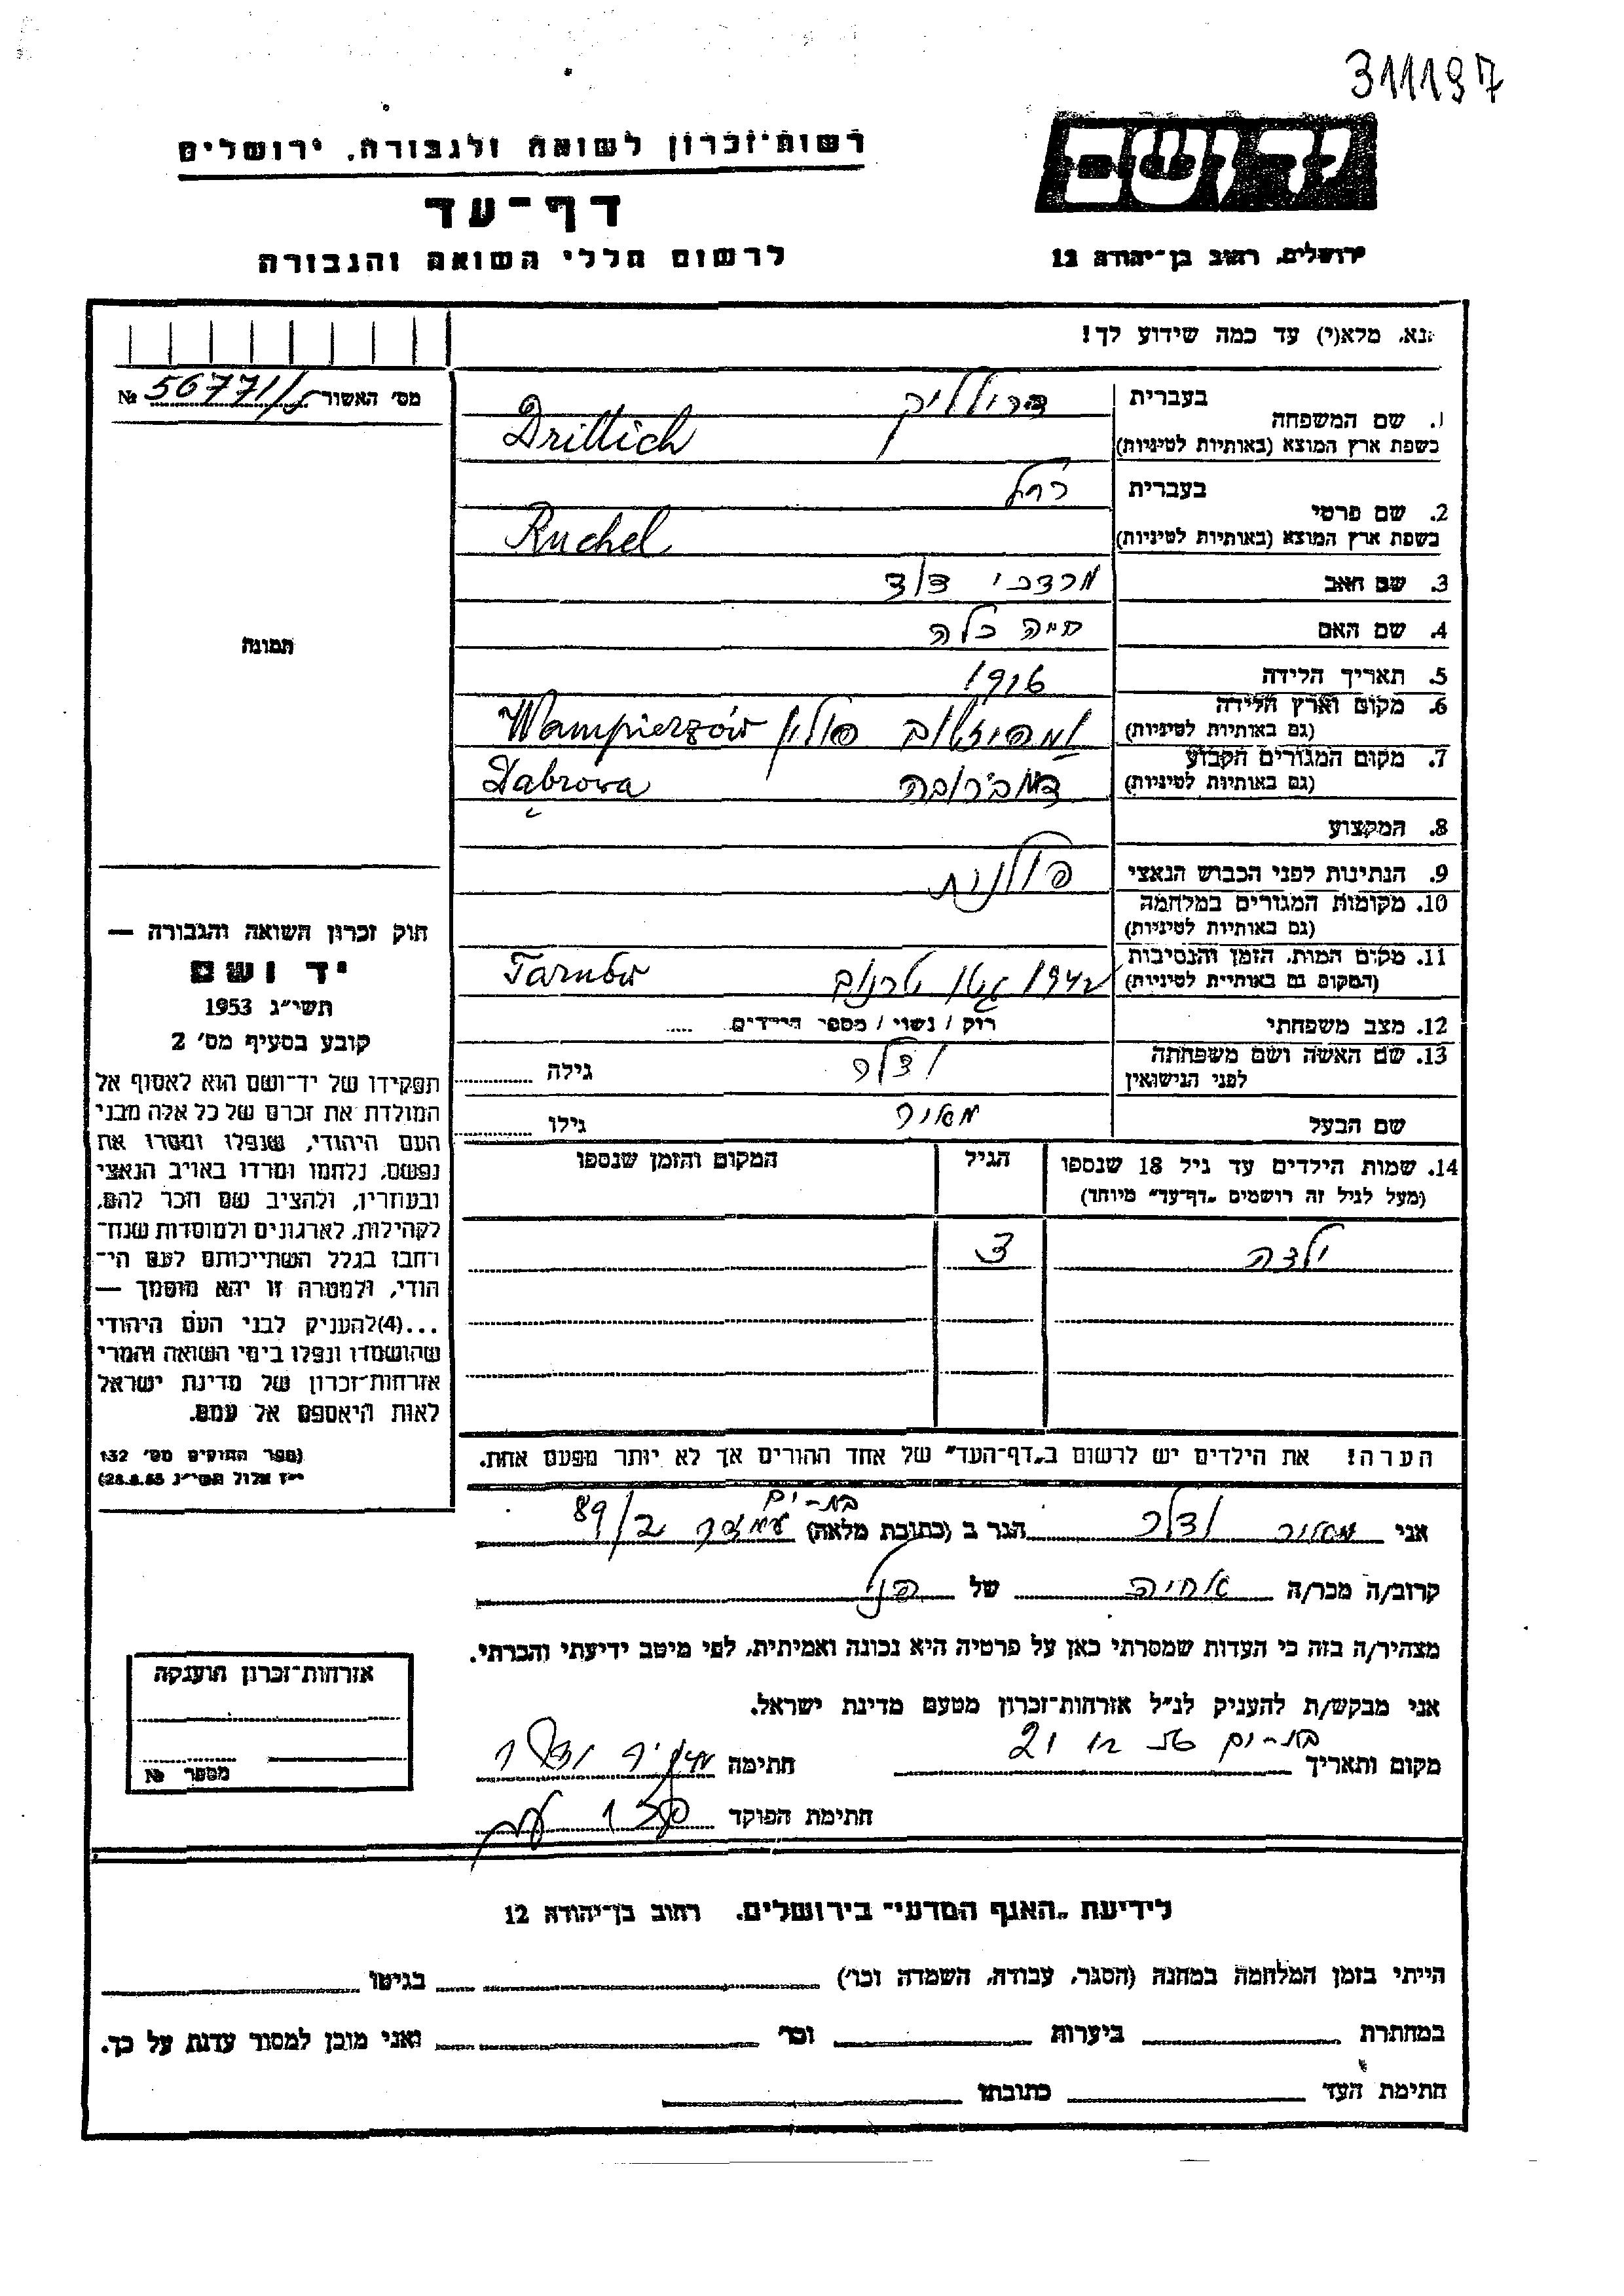 311197
יד ושם
רשות־זכרון לשואה ולגבורה, ירושלים
דף־עד
לרשום חללי השואה והגבורה
ירושלים, רחוב בן־יהודה 12
נא, מלא(י) עד כמה שידוע לך!
מס' האשור № 56771/5
1. שם המשפחה
בעברית
בשפת ארץ המוצא (באותיות לטיניות)
Drittich
2. שם פרטי
בעברית רחל
בשפת ארץ המוצא (באותיות לטיניות)
Ruchel
3. שם האב מרדכי דוד
4. שם האם חיה כלה
5. תאריך הלידה 1916
6. מקום וארץ הלידה
(גם באותיות לטיניות)
פולין Wampierzów
7. מקום המגורים הקבוע
(גם באותיות לטיניות)
דומברובה Dąbrowa
8. המקצוע
9. הנתינות לפני הכבוש הנאצי פולנית
10. מקומות המגורים במלחמה
(גם באותיות לטיניות)
11. מקום המות, הזמן והנסיבות
(המקום גם באותיות לטיניות)
1942 גטו טרנוב Tarnów
12. מצב משפחתי רוק / נשוי / מספר הילדים .....
13. שם האשה ושם משפחתה
לפני הנישואין
גילה
שם הבעל
גילו
14. שמות הילדים עד גיל 18 שנספו
(מעל לגיל זה רושמים „דף־עד" מיוחד)
הגיל
המקום והזמן שנספו
ילדה 3
הערה! את הילדים יש לרשום ב„דף־העד" של אחד ההורים אך לא יותר מפעם אחת.
תמונה
חוק זכרון השואה והגבורה —
יד ושם
תשי״ג 1953
קובע בסעיף מס' 2
תפקידו של יד־ושם הוא לאסוף אל
המולדת את זכרם של כל אלה מבני
העם היהודי, שנפלו ומסרו את
נפשם, נלחמו ומרדו באויב הנאצי
ובעוזריו, ולהציב שם וזכר להם,
לקהילות, לארגונים ולמוסדות שנח־
רחבו בגלל השתייכותם לעם הי־
הודי, ולמטרה זו יהא מוסמך —
...(4)להעניק לבני העם היהודי
שהושמדו ונפלו בימי השואה והמרי
אזרחות־זכרון של מדינת ישראל
לאות היאספם אל עמם.
(ספר החוקים מס' 132
י״ז אלול תשי״ג 28.8.53)
בת-ים
אני מאיר הגר ב (כתובת מלאה) 89/
קרוב/ה מכר/ה של
מצהיר/ה בזה כי העדות שמסרתי כאן על פרטיה היא נכונה ואמיתית, לפי מיטב ידיעתי והכרתי.
אני מבקש/ת להעניק לנ״ל אזרחות־זכרון מטעם מדינת ישראל.
מקום ותאריך בת-ים חתימה
חתימת הפוקד
אזרחות־זכרון הוענקה
מספר №
לידיעת „האגף המדעי" בירושלים, רחוב בן־יהודה 12
הייתי בזמן המלחמה במחנה (הסגר, עבודה, השמדה וכו') בגיטו
במחתרת ביערות וכו' ואני מוכן למסור עדות על כך.
חתימת העד כתובתו